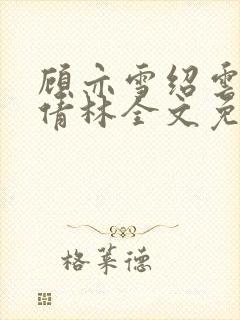 顾亦雪绍雲
倩林全文免
格莱德